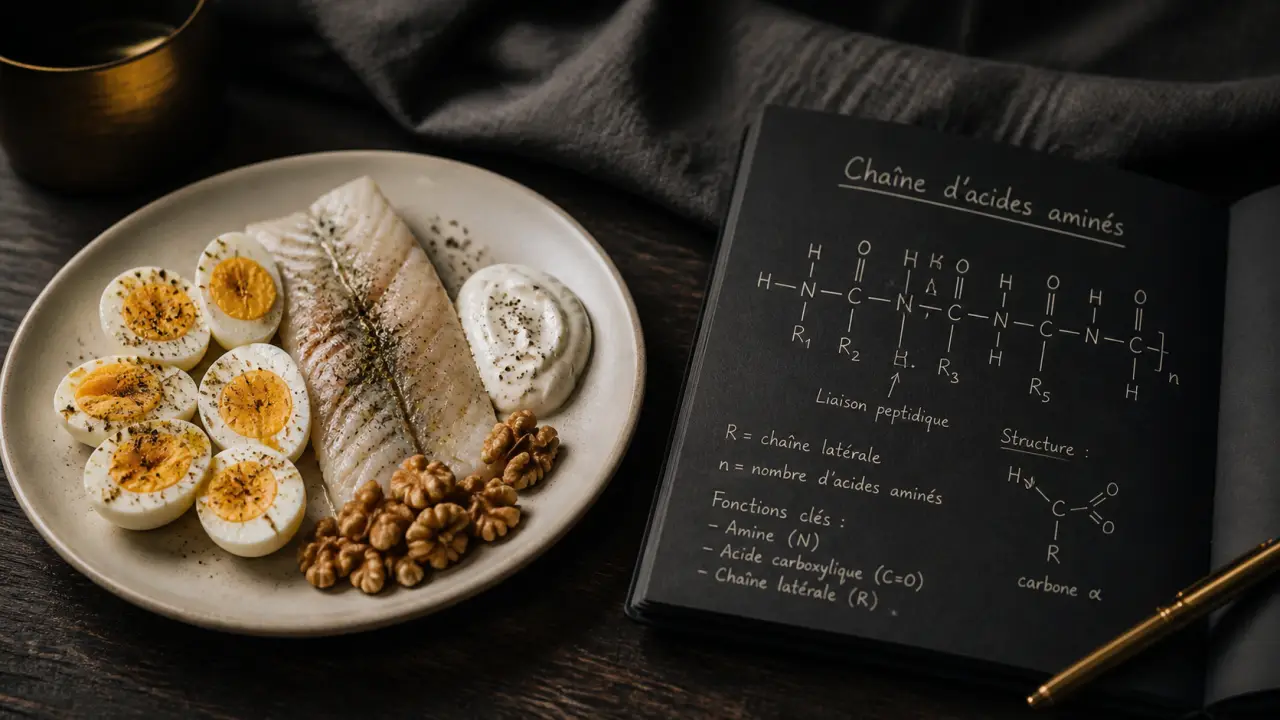 Chaîne d'acides aminés
H H K H H
O O O O
H—N—C—N—C—N—C—N—C
R₁ R₂ H. R₃ H R₅ H
n
Liaison peptidique
R = chaîne latérale
n = nombre d'acides aminés
Fonctions clés :
– Amine (N)
– Acide carboxylique (C=O)
– Chaîne latérale (R)
Structure :
H O
C O
R
carbone α